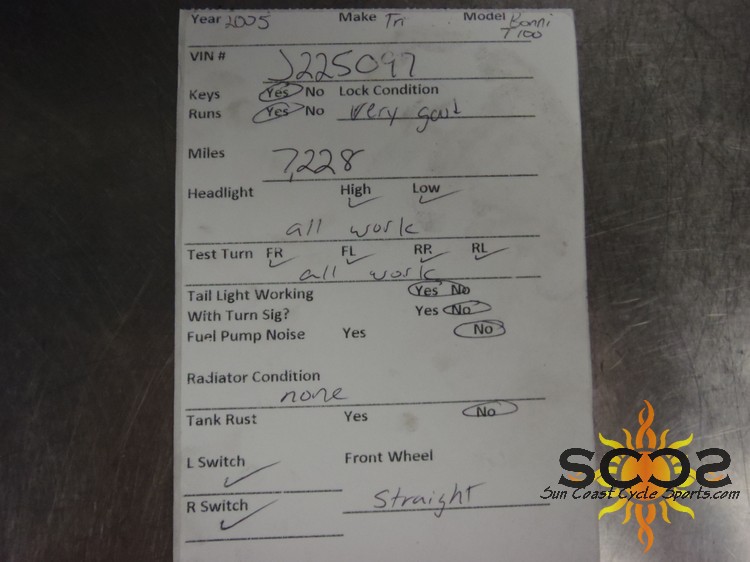 Year 2005 Make Tri Model Bonni
T100
VIN # J225097
Keys Yes No Lock Condition
Runs Yes No very good
Miles 7,228
Headlight High Low
all work
Test Turn FR FL RR RL
all work
Tail Light Working Yes No
With Turn Sig? Yes No
Fuel Pump Noise Yes No
Radiator Condition
none
Tank Rust Yes No
L Switch Front Wheel
R Switch Straight
SCCS
Sun Coast Cycle Sports.com